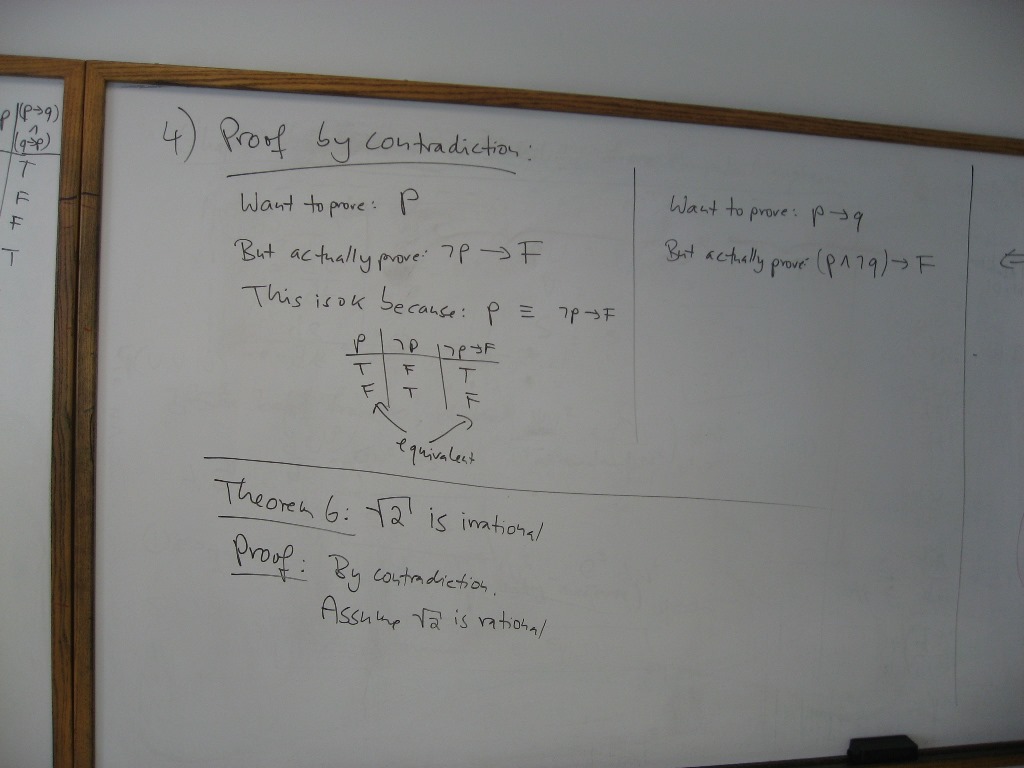 p | (p→q)
∧
(q→p)
T
F
F
T
4) Proof by contradiction:
Want to prove: P
But actually prove: ¬p → F
This is ok because: p ≡ ¬p→F
p | ¬p | ¬p→F
T | F | T
F | T | F
equivalent
Want to prove: p → q
But actually prove: (p ∧ ¬q) → F
⇐
Theorem 6: √2 is irrational
Proof: By contradiction.
Assume √2 is rational